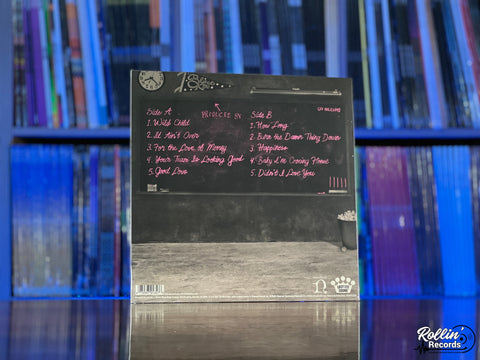 PRODUCED BY
Side A
1. Wild Child
2. It Ain't Over
3. For the Love of Money
4. Your Team Is Looking Good
5. Good Love
Side B
1. How Long
2. Burn the Damn Thing Down
3. Happiness
4. Baby I'm Coming Home
5. Didn't I Love You
Rollin'
Records